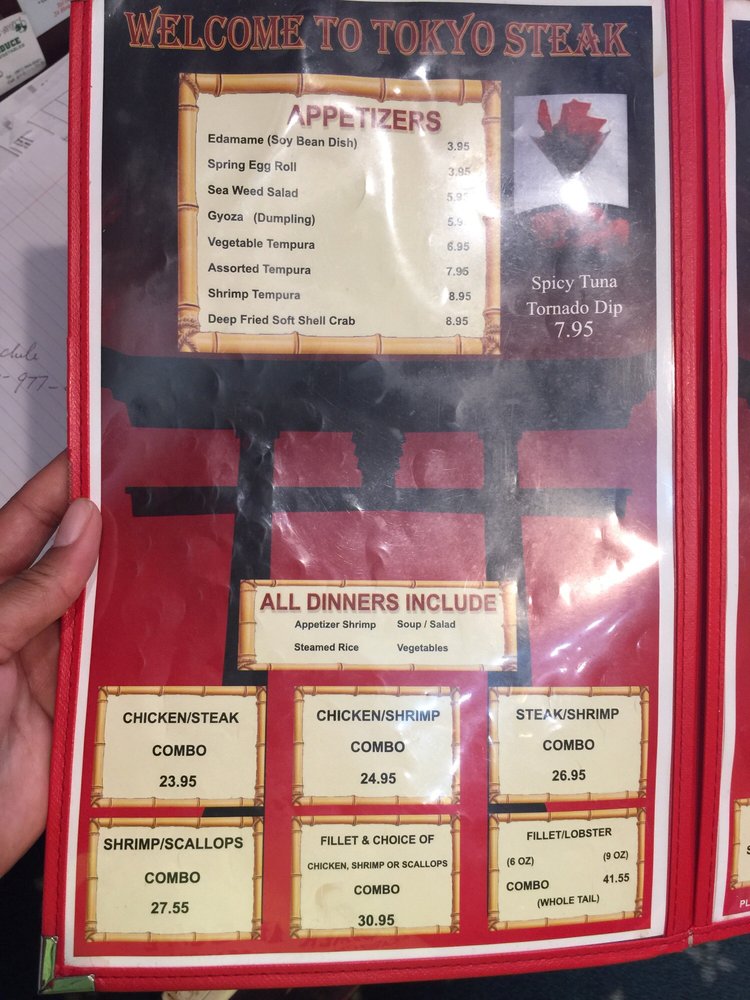 WELCOME TO TOKYO STEAK
APPETIZERS
Edamame (Soy Bean Dish) 3.95
Spring Egg Roll 3.95
Sea Weed Salad
Gyoza (Dumpling)
Vegetable Tempura 6.95
Assorted Tempura 7.95
Shrimp Tempura 8.95
Deep Fried Soft Shell Crab 8.95
Spicy Tuna
Tornado Dip
7.95
ALL DINNERS INCLUDE
Appetizer Shrimp Soup / Salad
Steamed Rice Vegetables
CHICKEN/STEAK
COMBO
23.95
CHICKEN/SHRIMP
COMBO
24.95
STEAK/SHRIMP
COMBO
26.95
SHRIMP/SCALLOPS
COMBO
27.55
FILLET & CHOICE OF
CHICKEN, SHRIMP OR SCALLOPS
COMBO
30.95
FILLET/LOBSTER
(6 OZ) (9 OZ)
COMBO 41.55
(WHOLE TAIL)